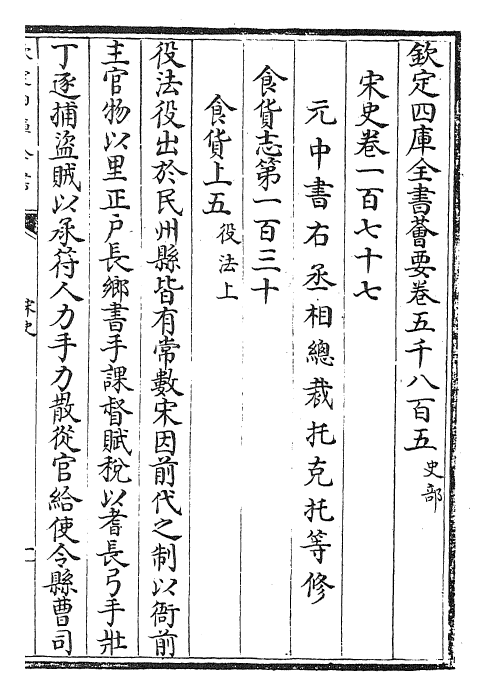 欽定四庫全書薈要卷五千八百五 史部
宋史卷一百七十七
元中書右丞相總裁托克托等修
食貨志第一百三十
食貨上五 役法上
役法役出於民州縣皆有常數宋因前代之制以衙前
主官物以里正戶長鄉書手課督賦稅以耆長弓手壯
丁逐捕盜賊以承符人力手力散從官給使令縣曹司
宋史